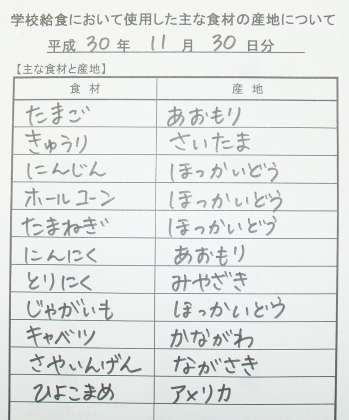 学校給食において使用した主な食材の産地について
平成 30 年 11 月 30 日分
【主な食材と産地】
食 材 産 地
たまご あおもり
きゅうり さいたま
にんじん ほっかいどう
ホールコーン ほっかいどう
たまねぎ ほっかいどう
にんにく あおもり
とりにく みやざき
じゃがいも ほっかいどう
キャベツ かながわ
さやいんげん ながさき
ひよこまめ アメリカ